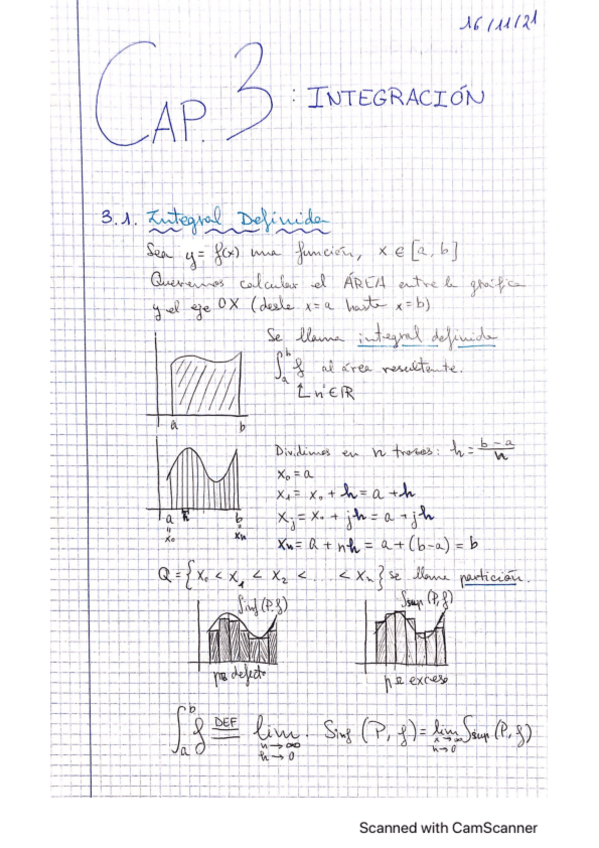 16/11/21
CAP. 3 : INTEGRACIÓN
3.1. Integral Definida
Sea y = f(x) una función, x ∈ [a, b]
Queremos calcular el ÁREA entre la gráfica
y el eje OX (desde x=a hasta x=b)
Se llama integral definida
∫_a^b f al área resultante.
nº ∈ ℝ
a b
Dividimos en n trozos: h = (b-a)/n
x₀ = a
x₁ = x₀ + h = a + h
xⱼ = x₀ + jh = a + jh
xₙ = a + nh = a + (b-a) = b
a h b
x₀ xₙ
Q = {x₀ < x₁ < x₂ < ... < xₙ} se llama partición.
Sinf (P, f) Ssup (P, f)
por defecto por exceso
∫_a^b f DEF= lim n→∞ h→0 . Sinf (P, f) = lim n→∞ h→0 Ssup (P, f)
Scanned with CamScanner